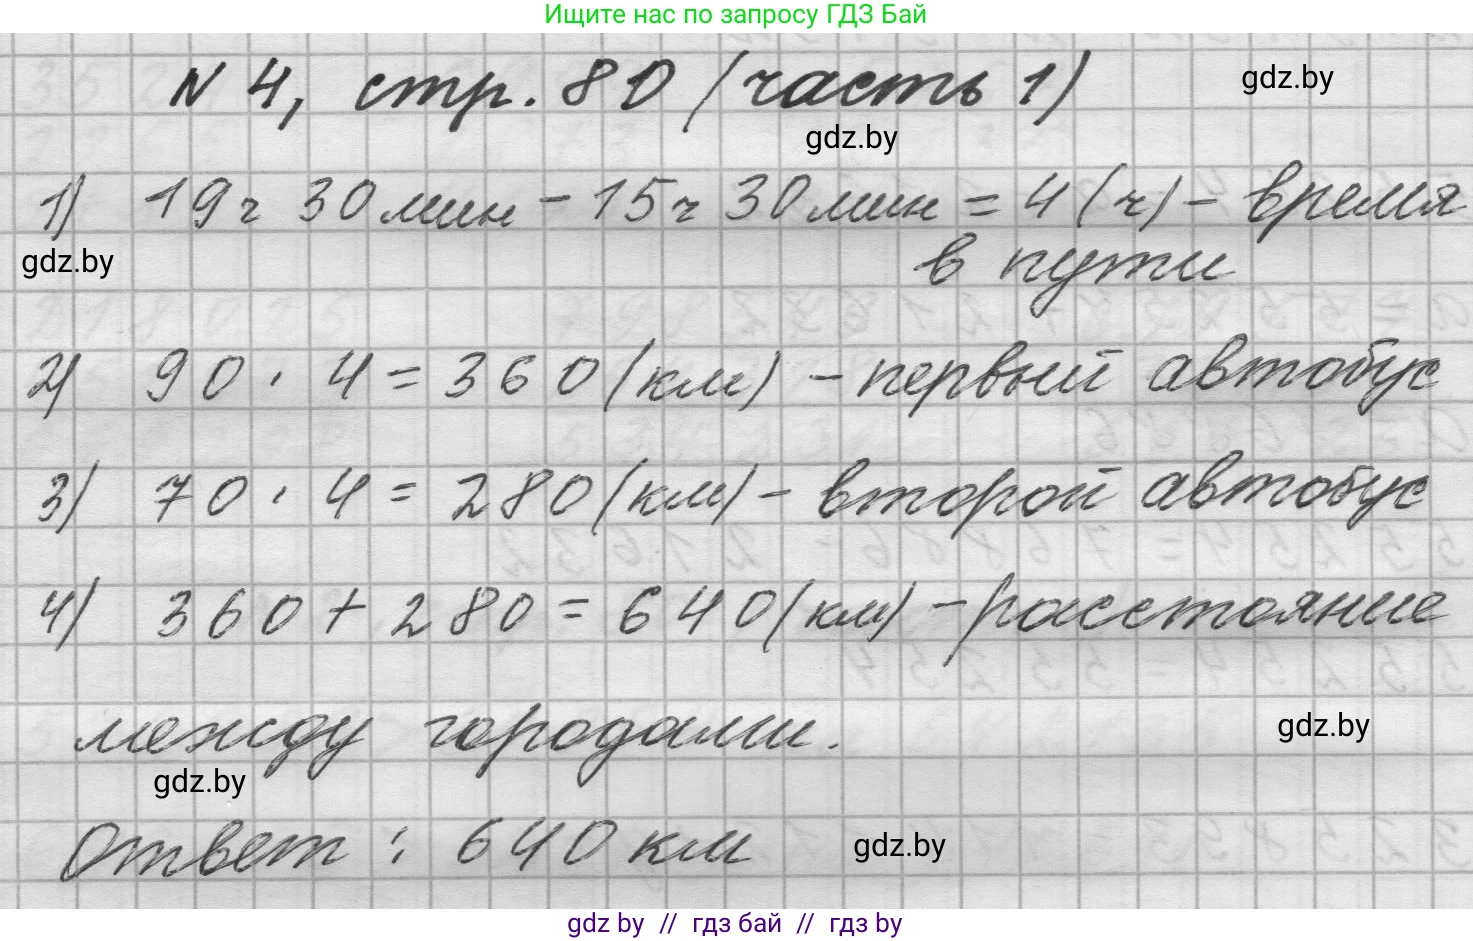 Ищите нас по запросу ГДЗ Бай
N 4, стр. 80 (часть 1)
gdz.by
gdz.by
1) 19ч 30мин - 15ч 30мин = 4(ч) - время
gdz.by
в пути
2) 90 · 4 = 360(км) - первый автобус
3) 70 · 4 = 280(км) - второй автобус
4) 360 + 280 = 640(км) - расстояние
между городами.
gdz.by
gdz.by
Ответ: 640 км
gdz.by
gdz by // гдз бай // гдз by